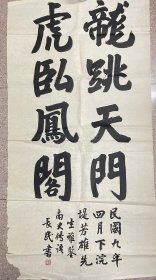 龍跳天門
虎臥鳳閣
民國九年
四月下浣
堤芳雄先
生雅鑒
南史
長民書